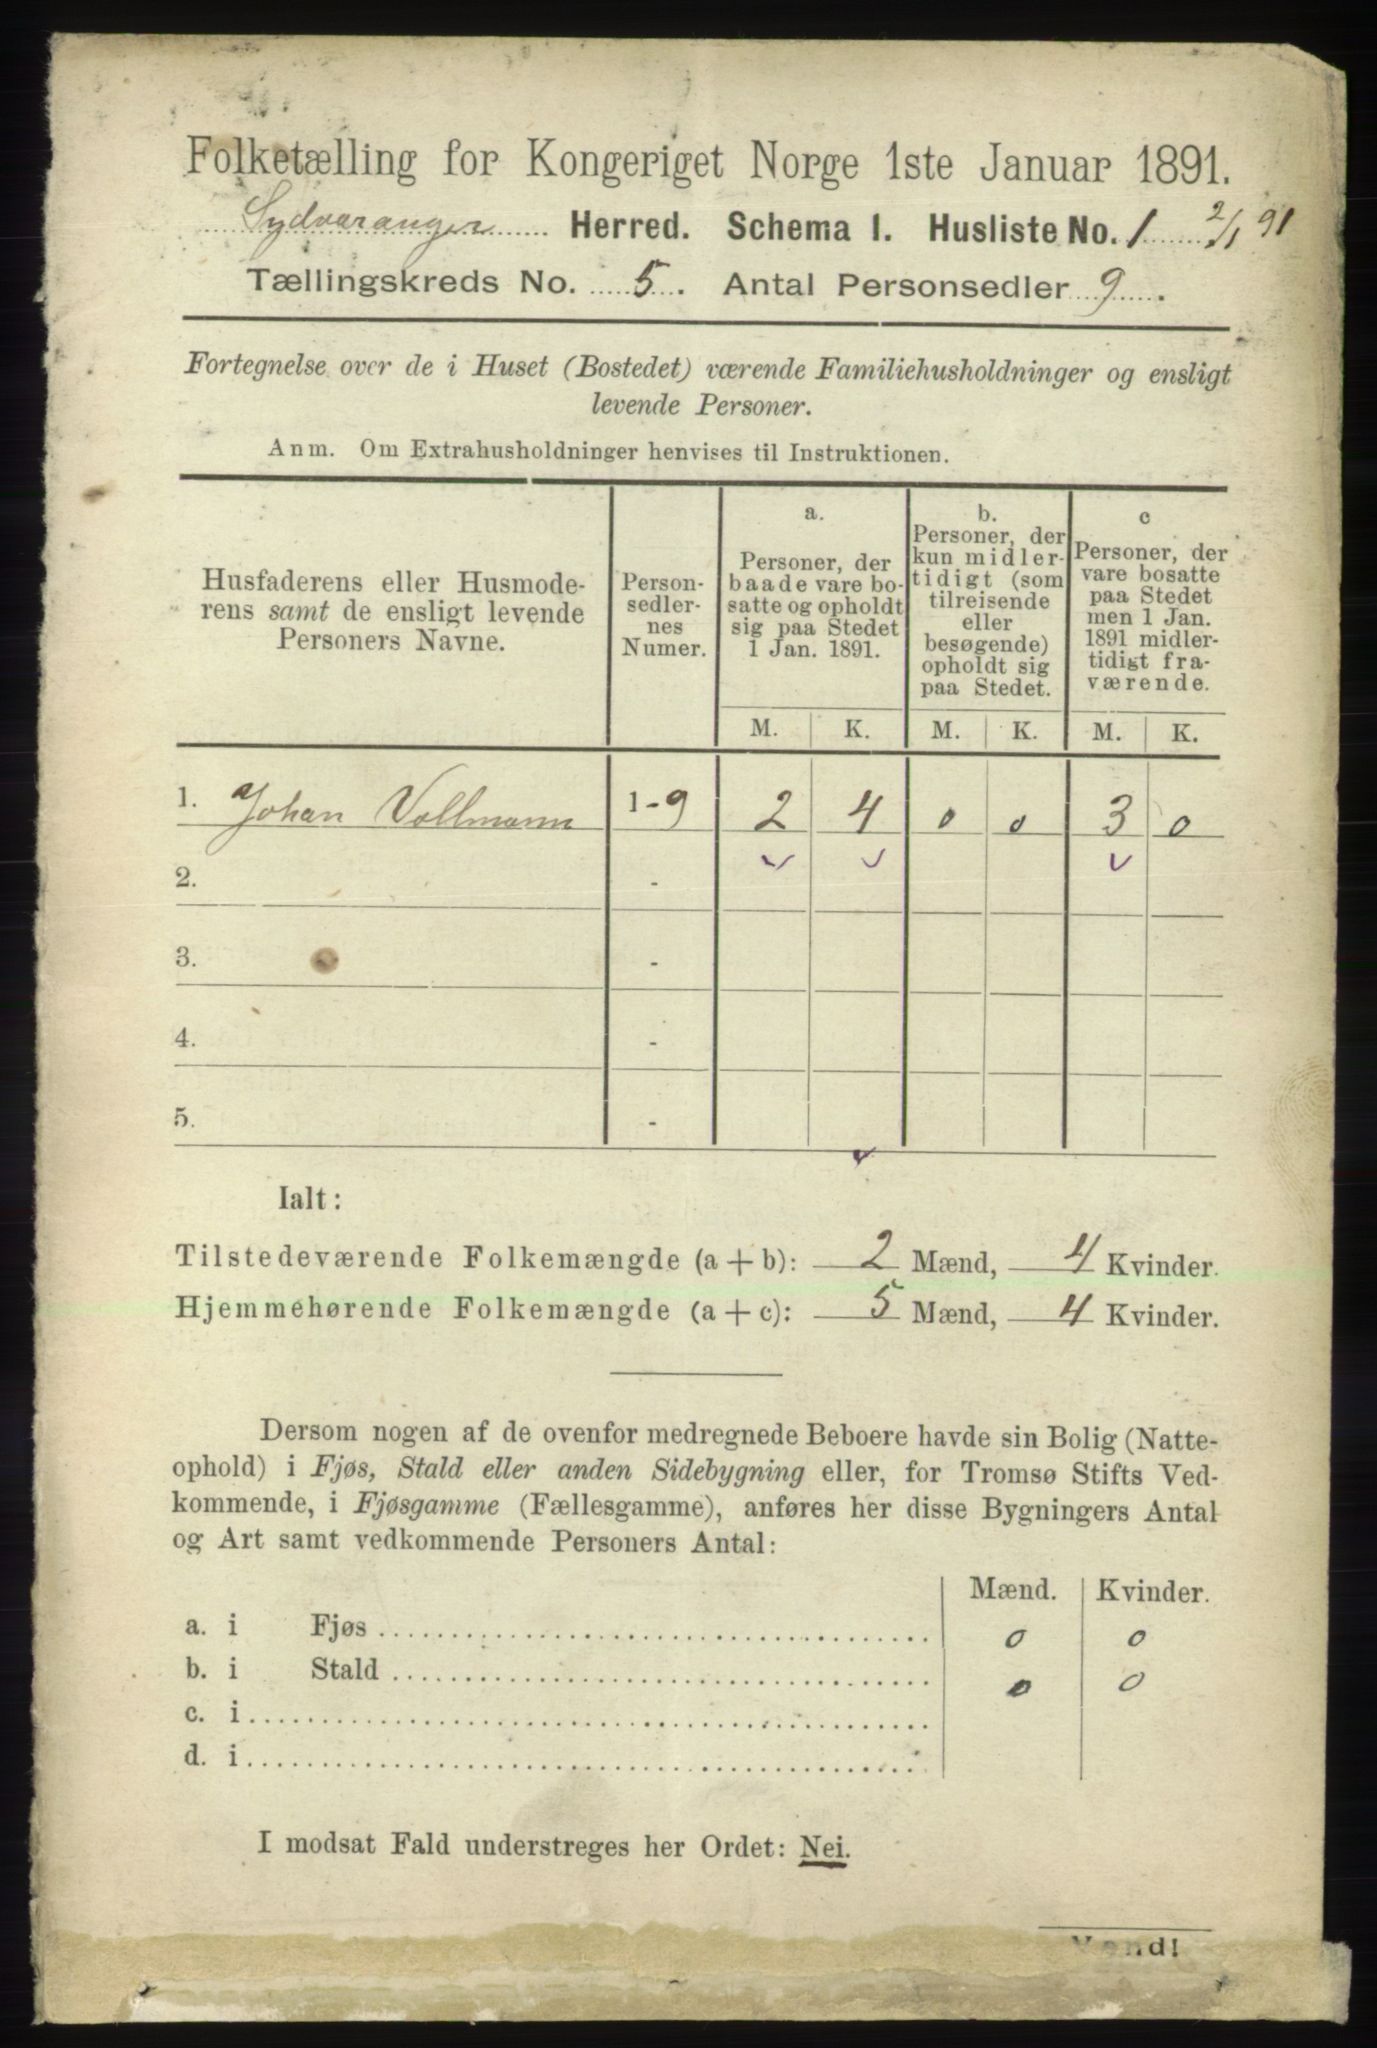 Folketælling for Kongeriget Norge 1ste Januar 1891.
Sydvaranger Herred. Schema I. Husliste No. 1 2/1 91
Tællingskreds No. 5. Antal Personsedler 9.
Fortegnelse over de i Huset (Bostedet) værende Familiehusholdninger og ensligt
levende Personer.
Anm. Om Extrahusholdninger henvises til Instruktionen.
Husfaderens eller Husmode-
rens samt de ensligt levende
Personers Navne.
Person-
sedler-
nes
Numer.
a.
Personer, der
baade vare bo-
satte og opholdt
sig paa Stedet
1 Jan. 1891.
b.
Personer, der
kun midler-
tidigt (som
tilreisende
eller
besøgende)
opholdt sig
paa Stedet.
c
Personer, der
vare bosatte
paa Stedet
men 1 Jan.
1891 midler-
tidigt fra-
værende.
M. K. M. K. M. K.
1. Johan Vollmann 1-9 2 4 0 0 3 0
2. -
3. -
4. -
5. -
Ialt:
Tilstedeværende Folkemængde (a + b): 2 Mænd, 4 Kvinder.
Hjemmehørende Folkemængde (a + c): 5 Mænd, 4 Kvinder.
Dersom nogen af de ovenfor medregnede Beboere havde sin Bolig (Natte-
ophold) i Fjøs, Stald eller anden Sidebygning eller, for Tromsø Stifts Ved-
kommende, i Fjøsgamme (Fællesgamme), anføres her disse Bygningers Antal
og Art samt vedkommende Personers Antal:
Mænd. Kvinder.
a. i Fjøs 0 0
b. i Stald 0 0
c. i
d. i
I modsat Fald understreges her Ordet: Nei.
Vend!